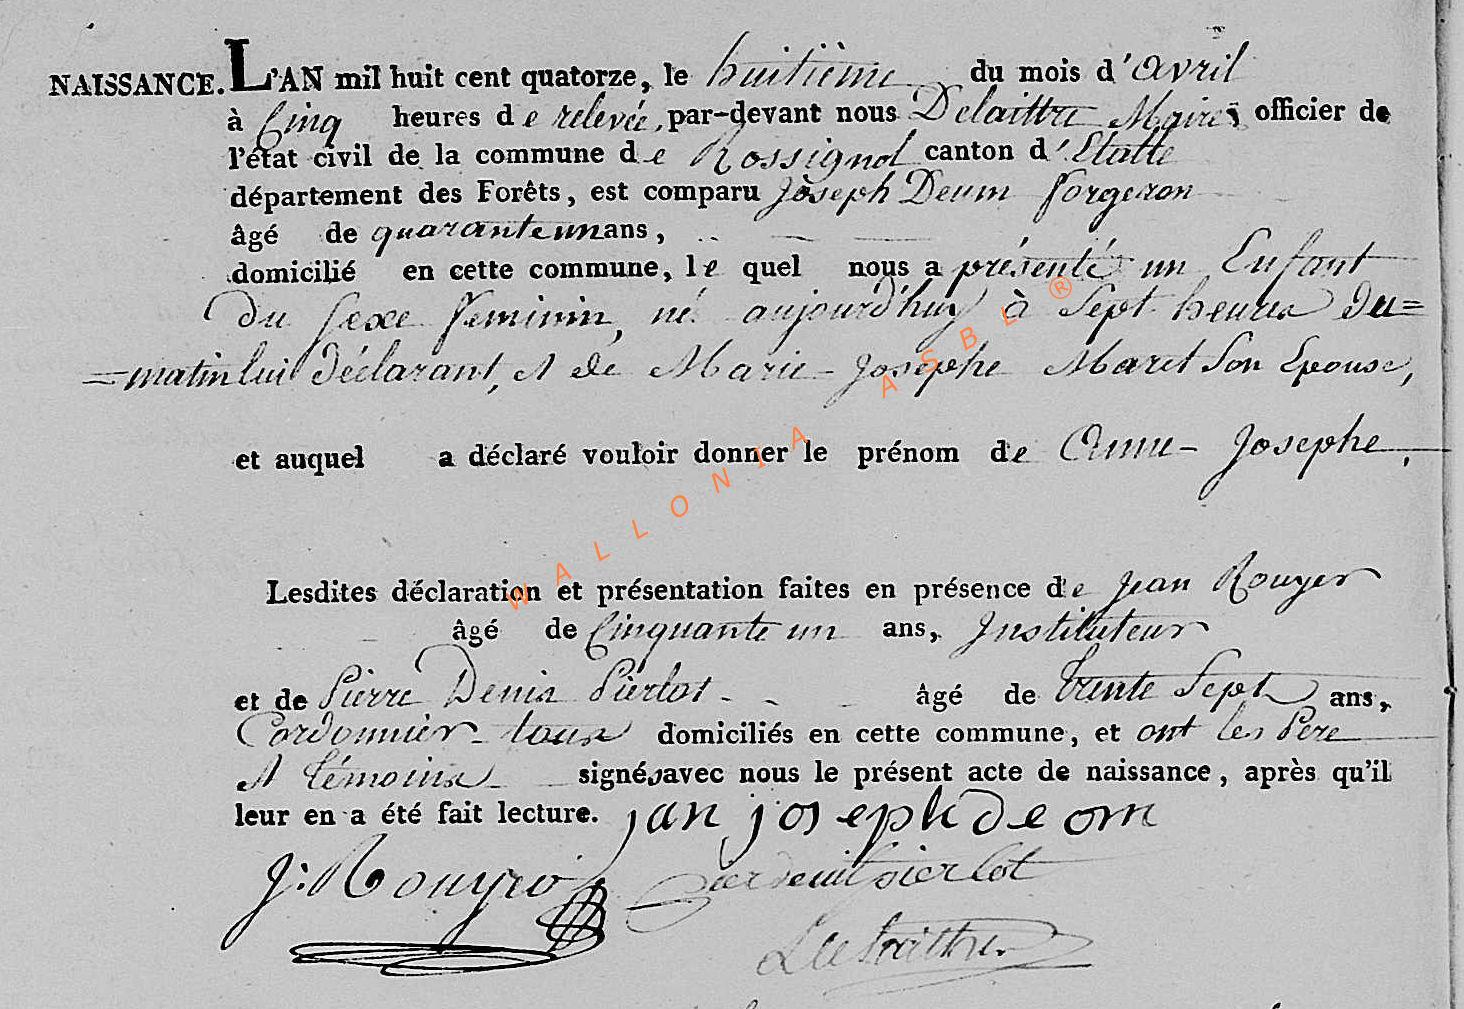 NAISSANCE. L'AN mil huit cent quatorze, le huitième du mois d'avril
à Cinq heures de relevée, par-devant nous Delaittre Maire, officier de
l'état civil de la commune de Rossignol canton d'Etalle
département des Forêts, est comparu Joseph Deum forgeron
âgé de quarante un ans,
domicilié en cette commune, le quel nous a présenté un Enfant
Du sexe feminin, né aujourd'huy à Sept heures du=
=matin lui déclarant, et de Marie-Josephe Maret Son Epouse,
et auquel a déclaré vouloir donner le prénom de Anne-Josephe.
Lesdites déclaration et présentation faites en présence de Jean Rouyer
âgé de Cinquante un ans, Instituteur
et de Pierre Denis Pierlot âgé de trente Sept ans,
Cordonnier tous domiciliés en cette commune, et ont les Père
et témoins signés avec nous le présent acte de naissance, après qu'il
leur en a été fait lecture. jan joseph deom
J: Rouyer pierlot
Delaittre
WALLONIA ASBL ®